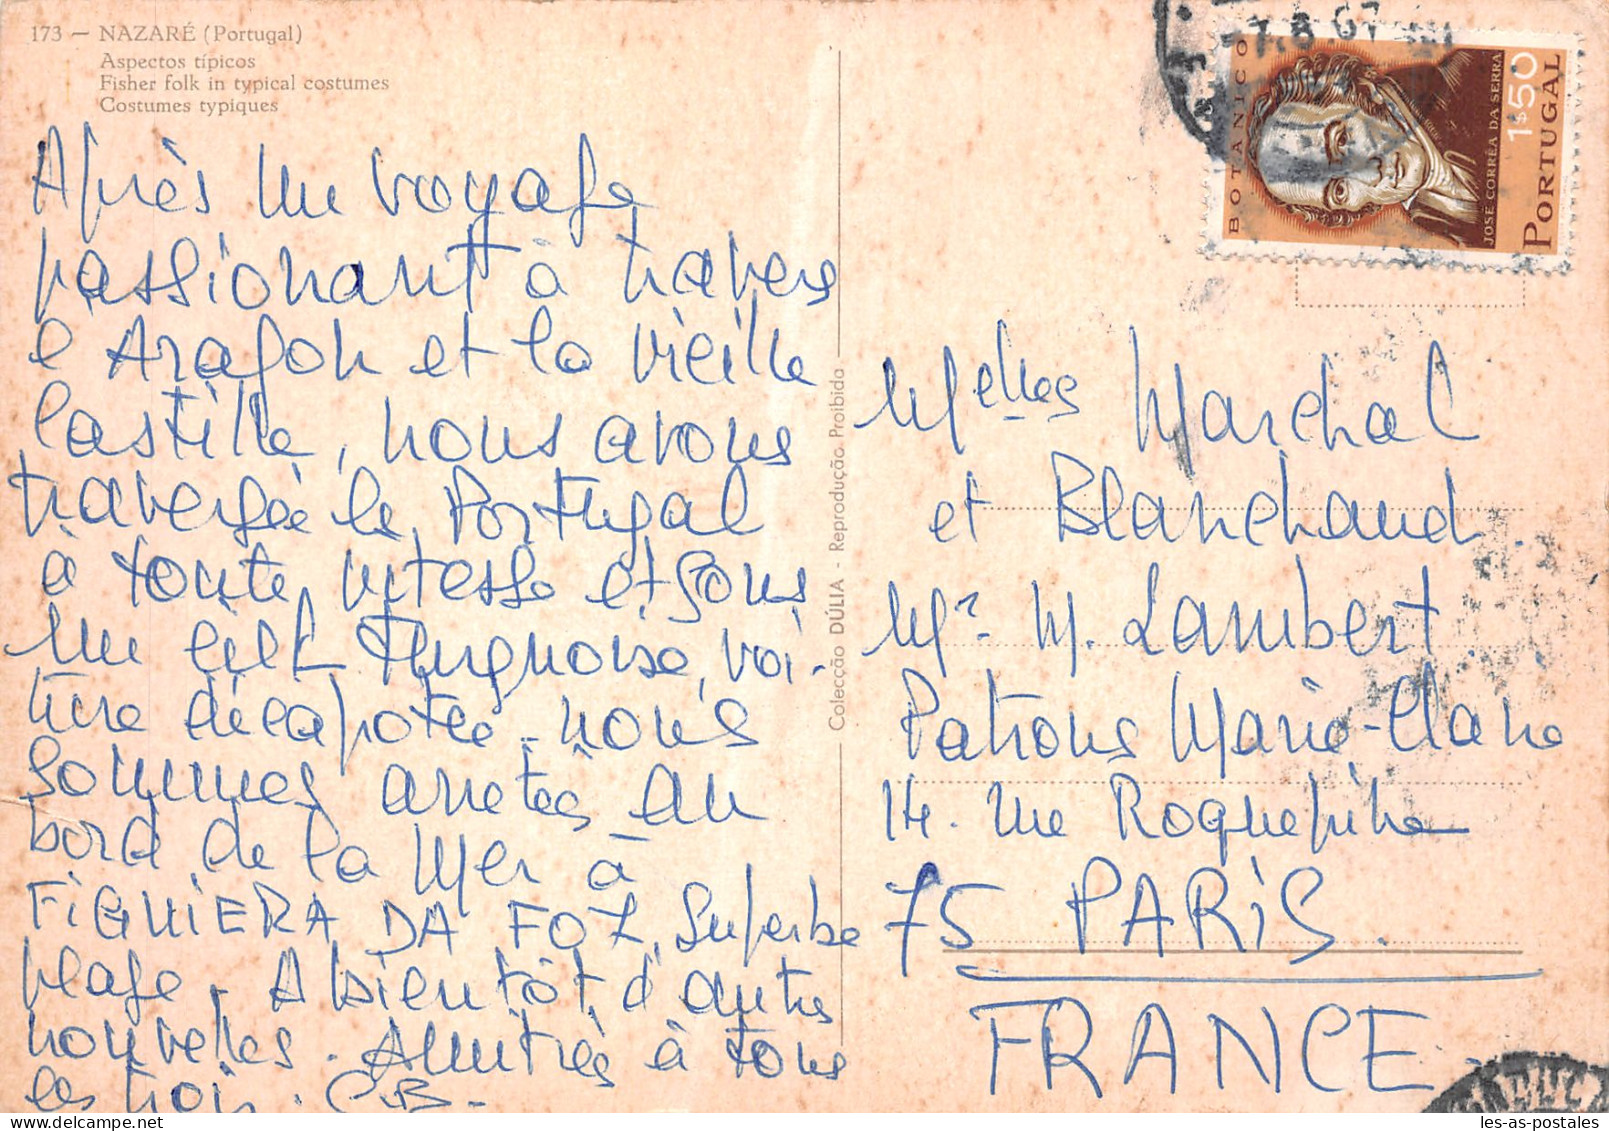 173 — NAZARÉ (Portugal)
Aspectos típicos
Fisher folk in typical costumes
Costumes typiques
Après un voyage
passionant à travers
l'Aragon et la vieille
Castille, nous avons
traversée le Portugal
à toute vitesse et sous
un ciel
voi-
ture décapotée. nous
sommes arretés au
bord de la Mer à
FiGUIERA DA FOZ, Superbe
plage. A bientôt d'autres
nouvelles. Amitiés à tous
les trois. C.B.
Colecção DÚLIA - Reprodução Proibida
-7.8.67
BOTANICO
JOSÉ CORRÊA DA SERRA
1$50
PORTUGAL
Melles Marchal
et Blanchaud.
Mr. M. Lambert
Patrons Marie-Claire
14. rue Roquepine
75 PARiS.
FRANCE.
les-as-postales